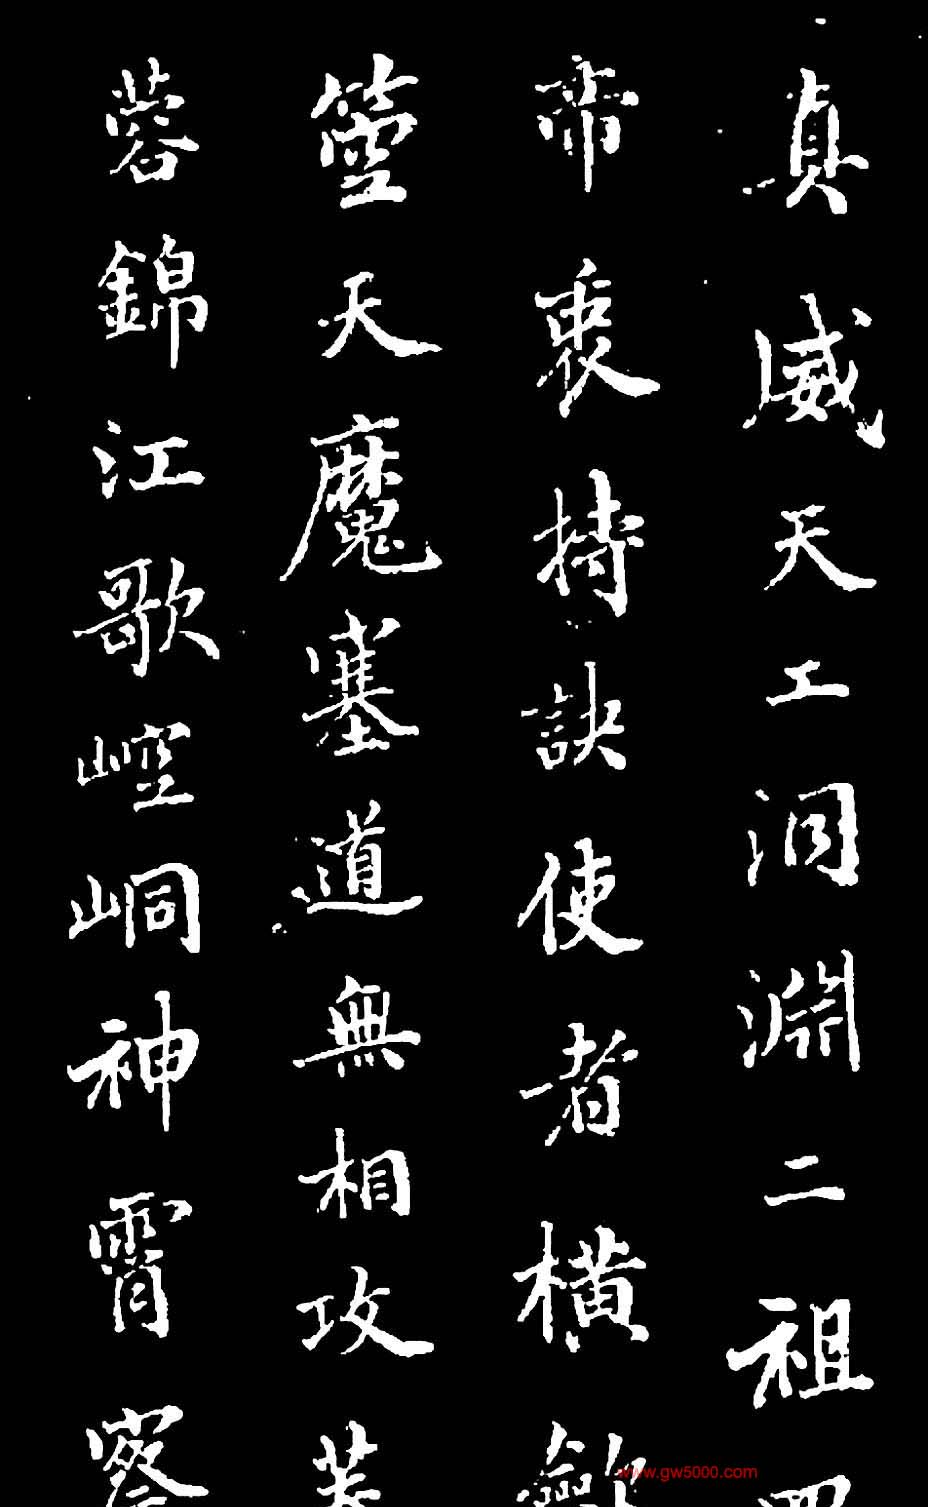 真威天工洞淵二祖
帝衷持訣使者橫
天魔塞道無相攻
蓉錦江歌崆峒神霄
www.gw5000.com